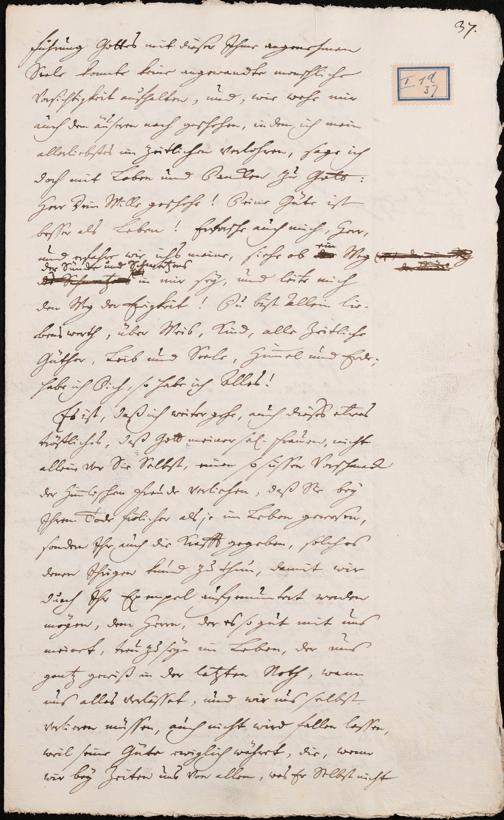 37.
I 1a
37
Führung Gottes mit dieser Ihme angenehmen
Seele konnte keine angewandte menschliche
Vorsichtigkeit aufhalten, und, wie wehe mir
auch dem äuseren nach geschehen, indem ich mein
allerliebstes im Zeitlichen verlohren, sage ich
doch mit Loben und Dancken zu Gott:
Herr Dein Wille geschehe! Deine Güte ist
besser als Leben! Erforsche auch mich, Herr,
und erfahre wie ichs meine, siehe ob ein Weg
der Sünde und Schmertzens
in mir sey, und leite mich
den Weg der Ewigkeit! Du bist allein lie-
benswerth, über Weib, Kind, alle Zeitliche
Güther, Leib und Seele, Himmel und Erde;
habe ich Dich, so habe ich Alles!
Es ist, daß ich weiter gehe, auch dieses etwas
tröstliches, daß Gott meiner sel. Frauen, nicht
allein vor Sie Selbst, einen so süssen Vorschmack
der himlischen Freude verliehen, daß Sie bey
Ihrem Tode frölicher als je im Leben gewesen,
sondern Ihr auch die Krafft gegeben, solches
denen Ihrigen kund zu thun, damit wir
durch Ihr Exempel aufgemuntert werden
mögen, dem Herrn, der es so gut mit uns
meinet, treu zu seyn im Leben, der uns
gantz gewiß in der letzten Noth, wann
uns alles verlässet, und wir uns selbst
verlieren müssen, auch nicht wird fallen lassen,
weil seine Güte ewiglich währet, die, wenn
wir bey Zeiten uns von allem, was Er Selbst nicht